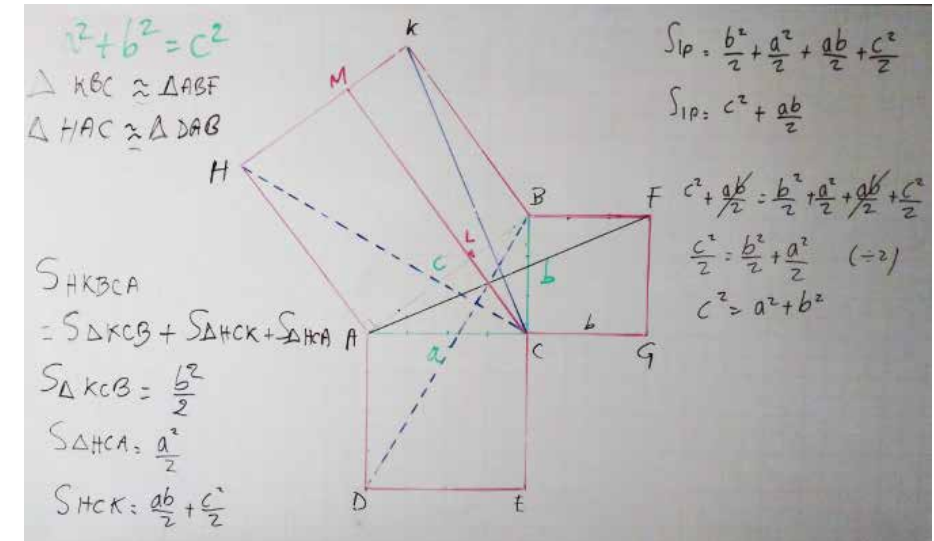 a²+b²=c²
△ KBC ≅ △ABF
△ HAC ≅ △ DAB
S HKBCA
= S△KCB + S△HCK + S△HCA
S△ KCB = b²/2
S△HCA = a²/2
S HCK = ab/2 + c²/2
K
M
H
B
F
L
c
b
A
a
C
b
G
D
E
S1p = b²/2 + a²/2 + ab/2 + c²/2
S1p = c² + ab/2
c² + ab/2 = b²/2 + a²/2 + ab/2 + c²/2
c²/2 = b²/2 + a²/2 (÷2)
c² = a² + b²